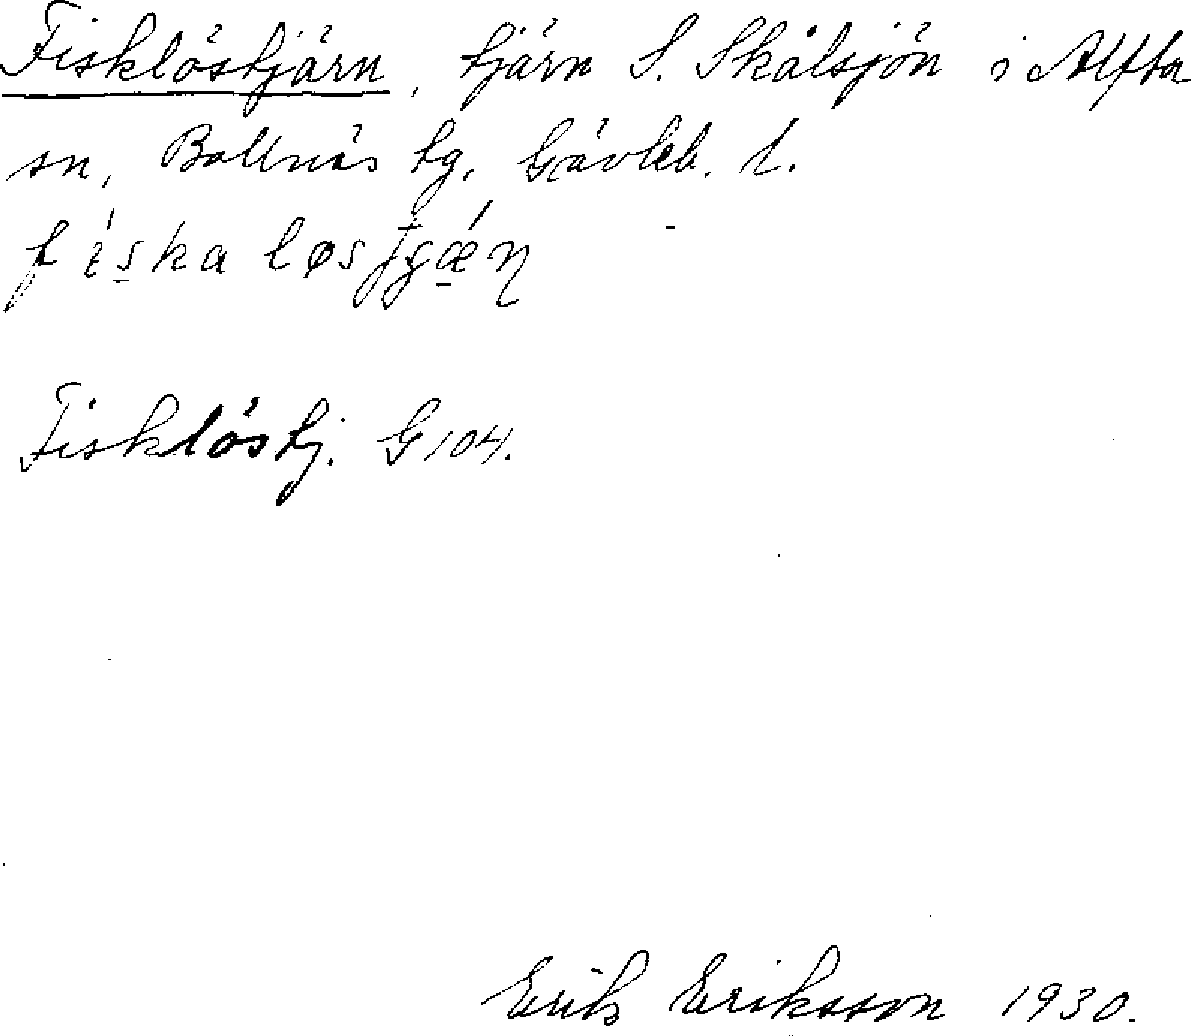 Fisklöstjärn, tjärn S. Skålsjön i Alfta
sn, Bollnäs tg, Gävleb. l.
Fisklöstj. G 104.
Erik Eriksson 1930.